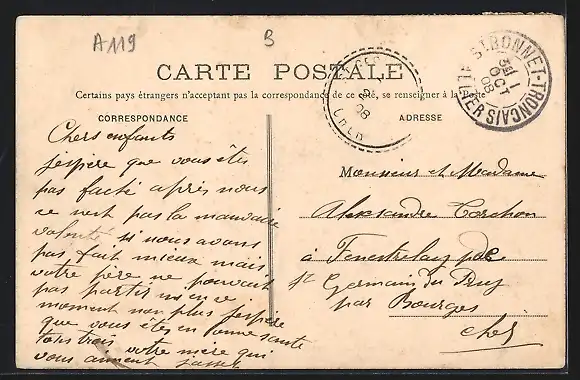 A119
B
CARTE POSTALE
Certains pays étrangers n'acceptant pas la correspondance de ce côté, se renseigner à la Poste
CORRESPONDANCE
ADRESSE
ST BONNET-TRONÇAIS
31
OCT
08
ALLIER
08
CHER
Chers enfants
j'espère que vous êtes
pas faché après nous
ce nest pas la mauvaise
volonté si nous avons
pas fait mieux mais
votre père ne pouvait
pas partir
moment non plus j'espère
que vous êtes en bonne santé
tous trois votre mère qui
vous aiment
Monsieur et Madame
Alexsandre Corchon
à
St Germain du Puy
par Bourges
Cher